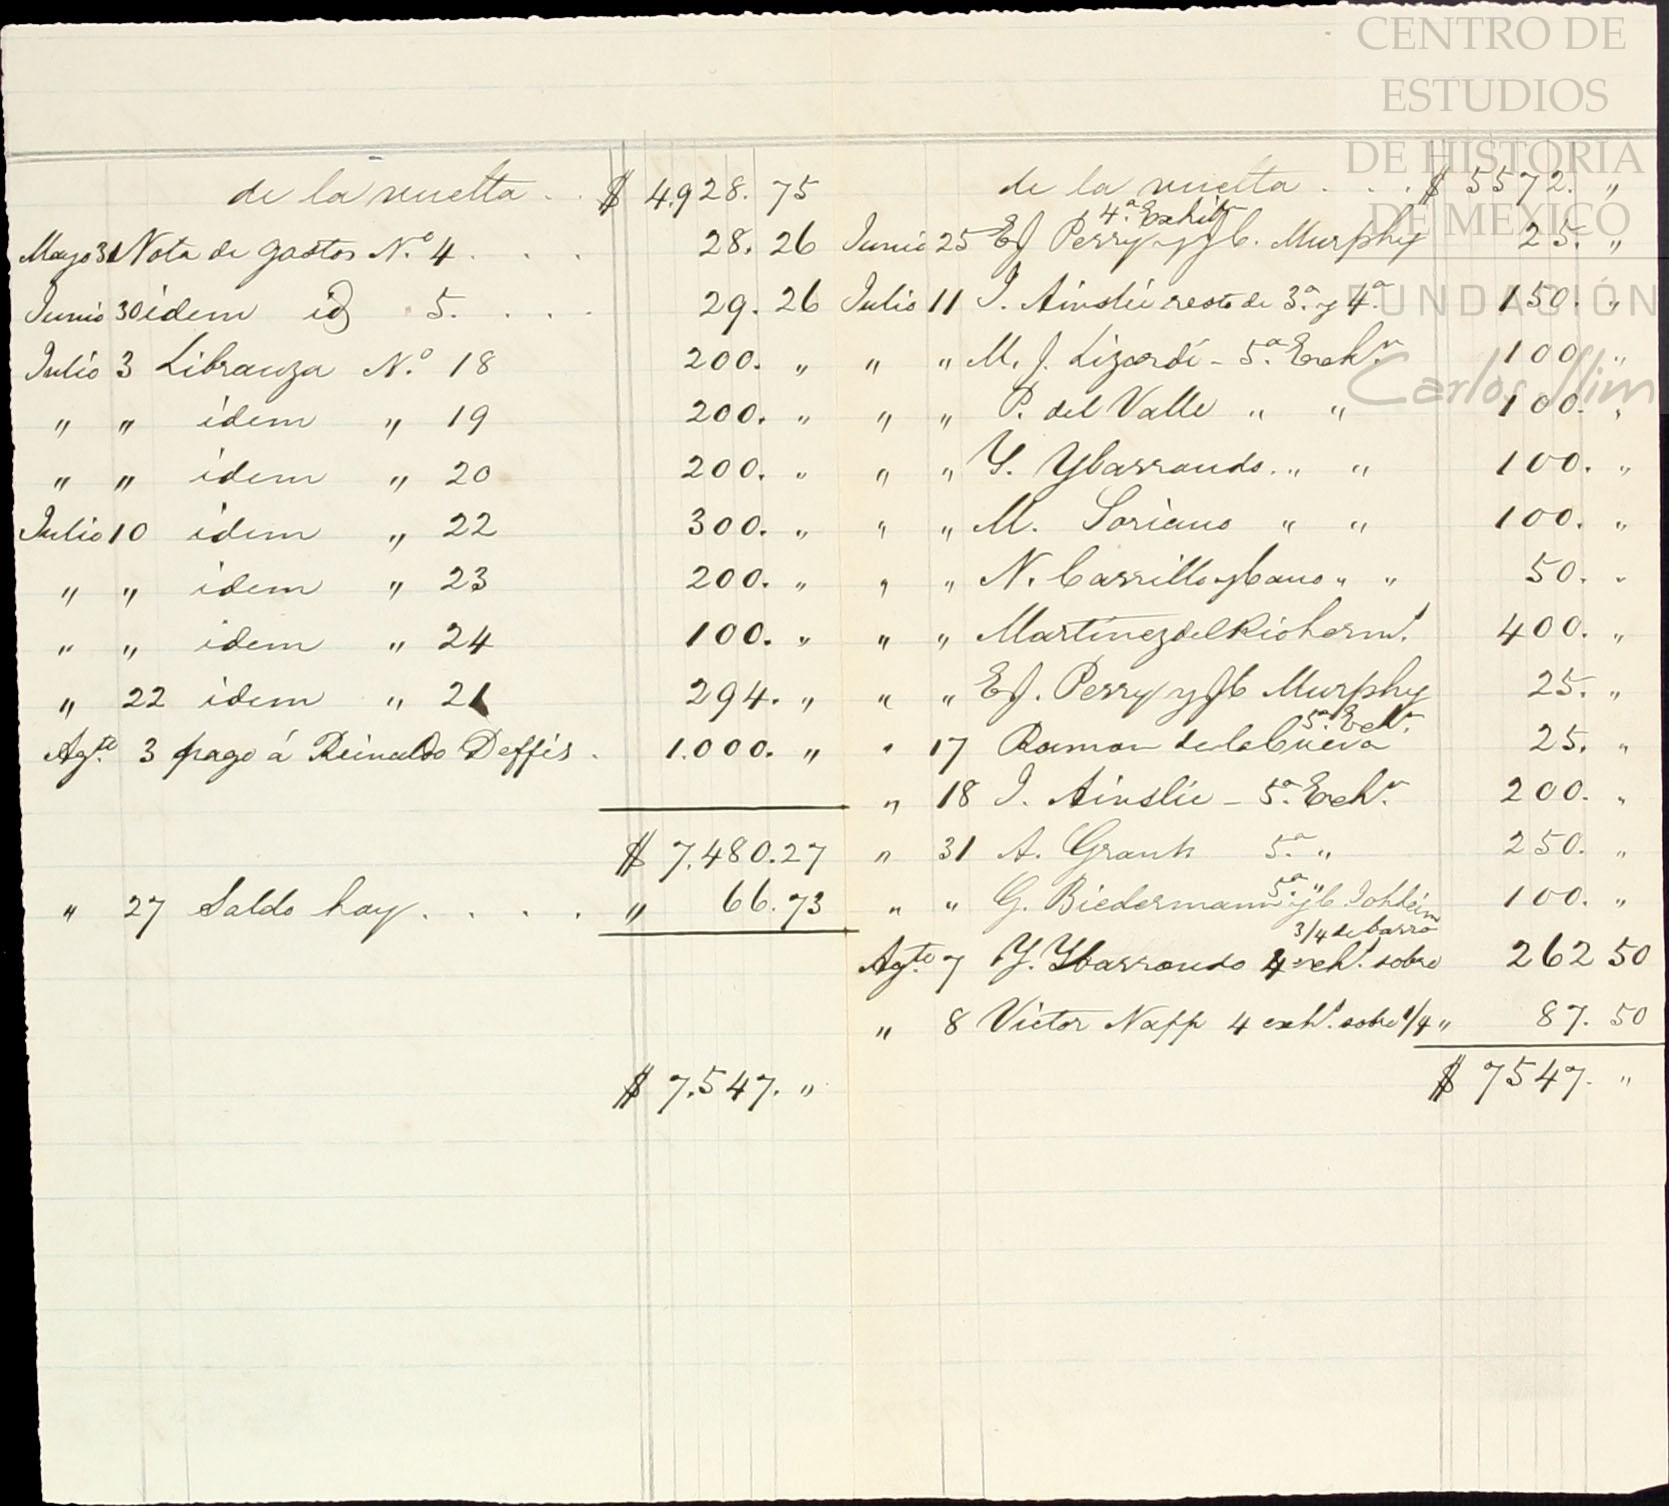 CENTRO DE
ESTUDIOS
DE HISTORIA
DE MEXICO
FUNDACIÓN
Carlos Slim
de la vuelta . . $ 4.928. 75
Mayo 31 Nota de gastos N.º 4 . . . 28. 26
Junio 30 idem id 5. . . . 29. 26
Julio 3 Libranza N.º 18 200. "
" " idem " 19 200. "
" " idem " 20 200. "
Julio 10 idem " 22 300. "
" " idem " 23 200. "
" " idem " 24 100. "
" 22 idem " 21 294. "
Agto. 3 pago á Reinaldo Deffis . 1.000. "
$ 7.480.27
" 27 Saldo hoy . . . . " 66.73
$ 7.547. "
de la vuelta . . . $ 5572. "
4.ª Exhibn
Junio 25 EJ Perry y J C. Murphy 25. "
Julio 11 I. Ainslie resto de 3.ª y 4.ª 150. "
" " M. J. Lizardi - 5.ª Exhn. 100 "
" " P. del Valle " " 100. "
" " Y. Ybarrondo. " " 100. "
" " M. Soriano " " 100. "
" " N. Carrillo y Cano " " 50. "
" " Martinez del Rio herms. 400. "
" " EJ. Perry y J C Murphy 25. "
5.ª Exhn.
" 17 Ramon de la Cueva 25. "
" 18 I. Ainslie - 5.ª Exhn. 200. "
" 31 A. Grant 5.ª " 250. "
5.ª "
" " G. Biedermann y C 100. "
3/4 de barra
Agto. 7 Y. Ybarrondo 4 exhs. sobre 262 50
" 8 Victor Napp 4 exhs. sobre 1/4 " 87. 50
$ 7547. "